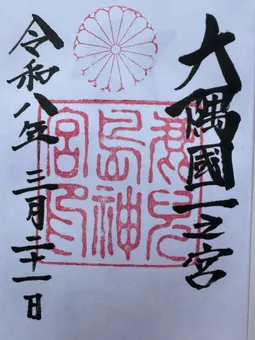 大隅國一之宮
鹿兒島神宮印
令和八年三月二十一日